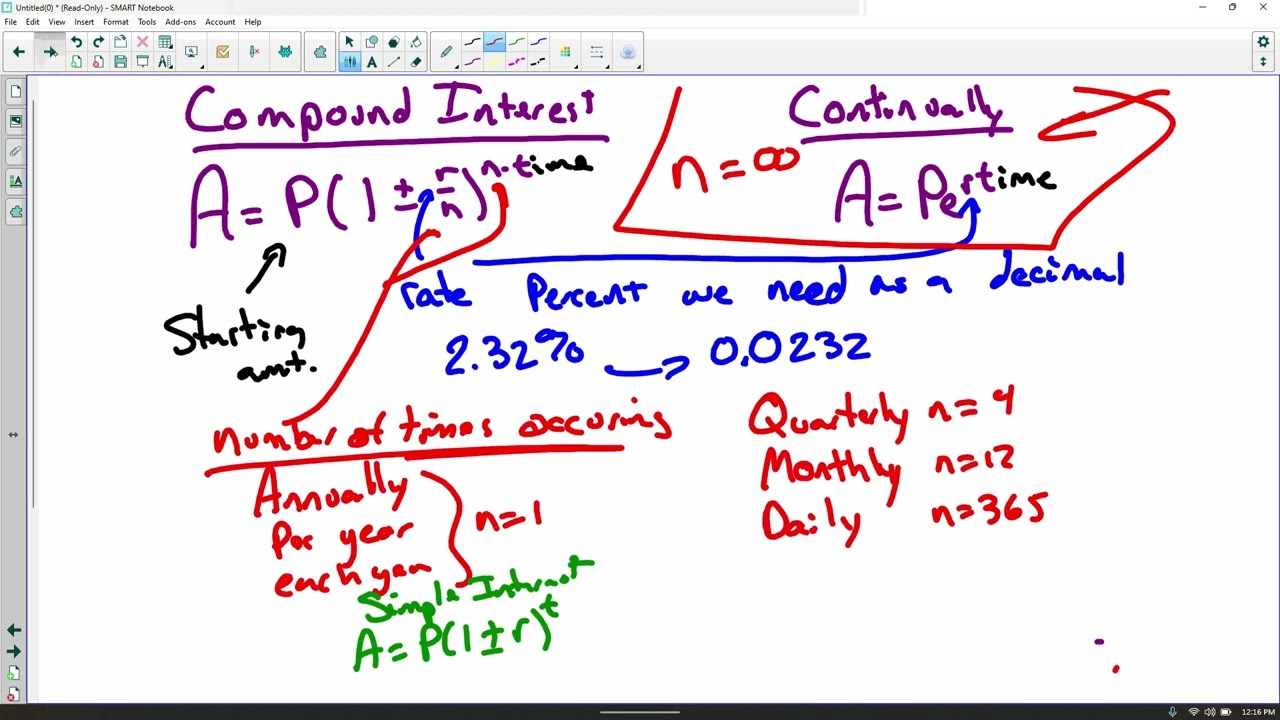 Untitled(0) * (Read-Only) - SMART Notebook
File Edit View Insert Format Tools Add-ons Account Help
Compound Interest
A = P(1 ± r/n)^n·time
Starting
amt.
Continually
n = ∞
A = Pe^rtime
rate Percent we need as a decimal
2.32% → 0.0232
number of times occuring
Annually
Per year
each year
n=1
Simple Interest
A = P(1 ± r)^t
Quarterly n=4
Monthly n=12
Daily n=365
12:16 PM